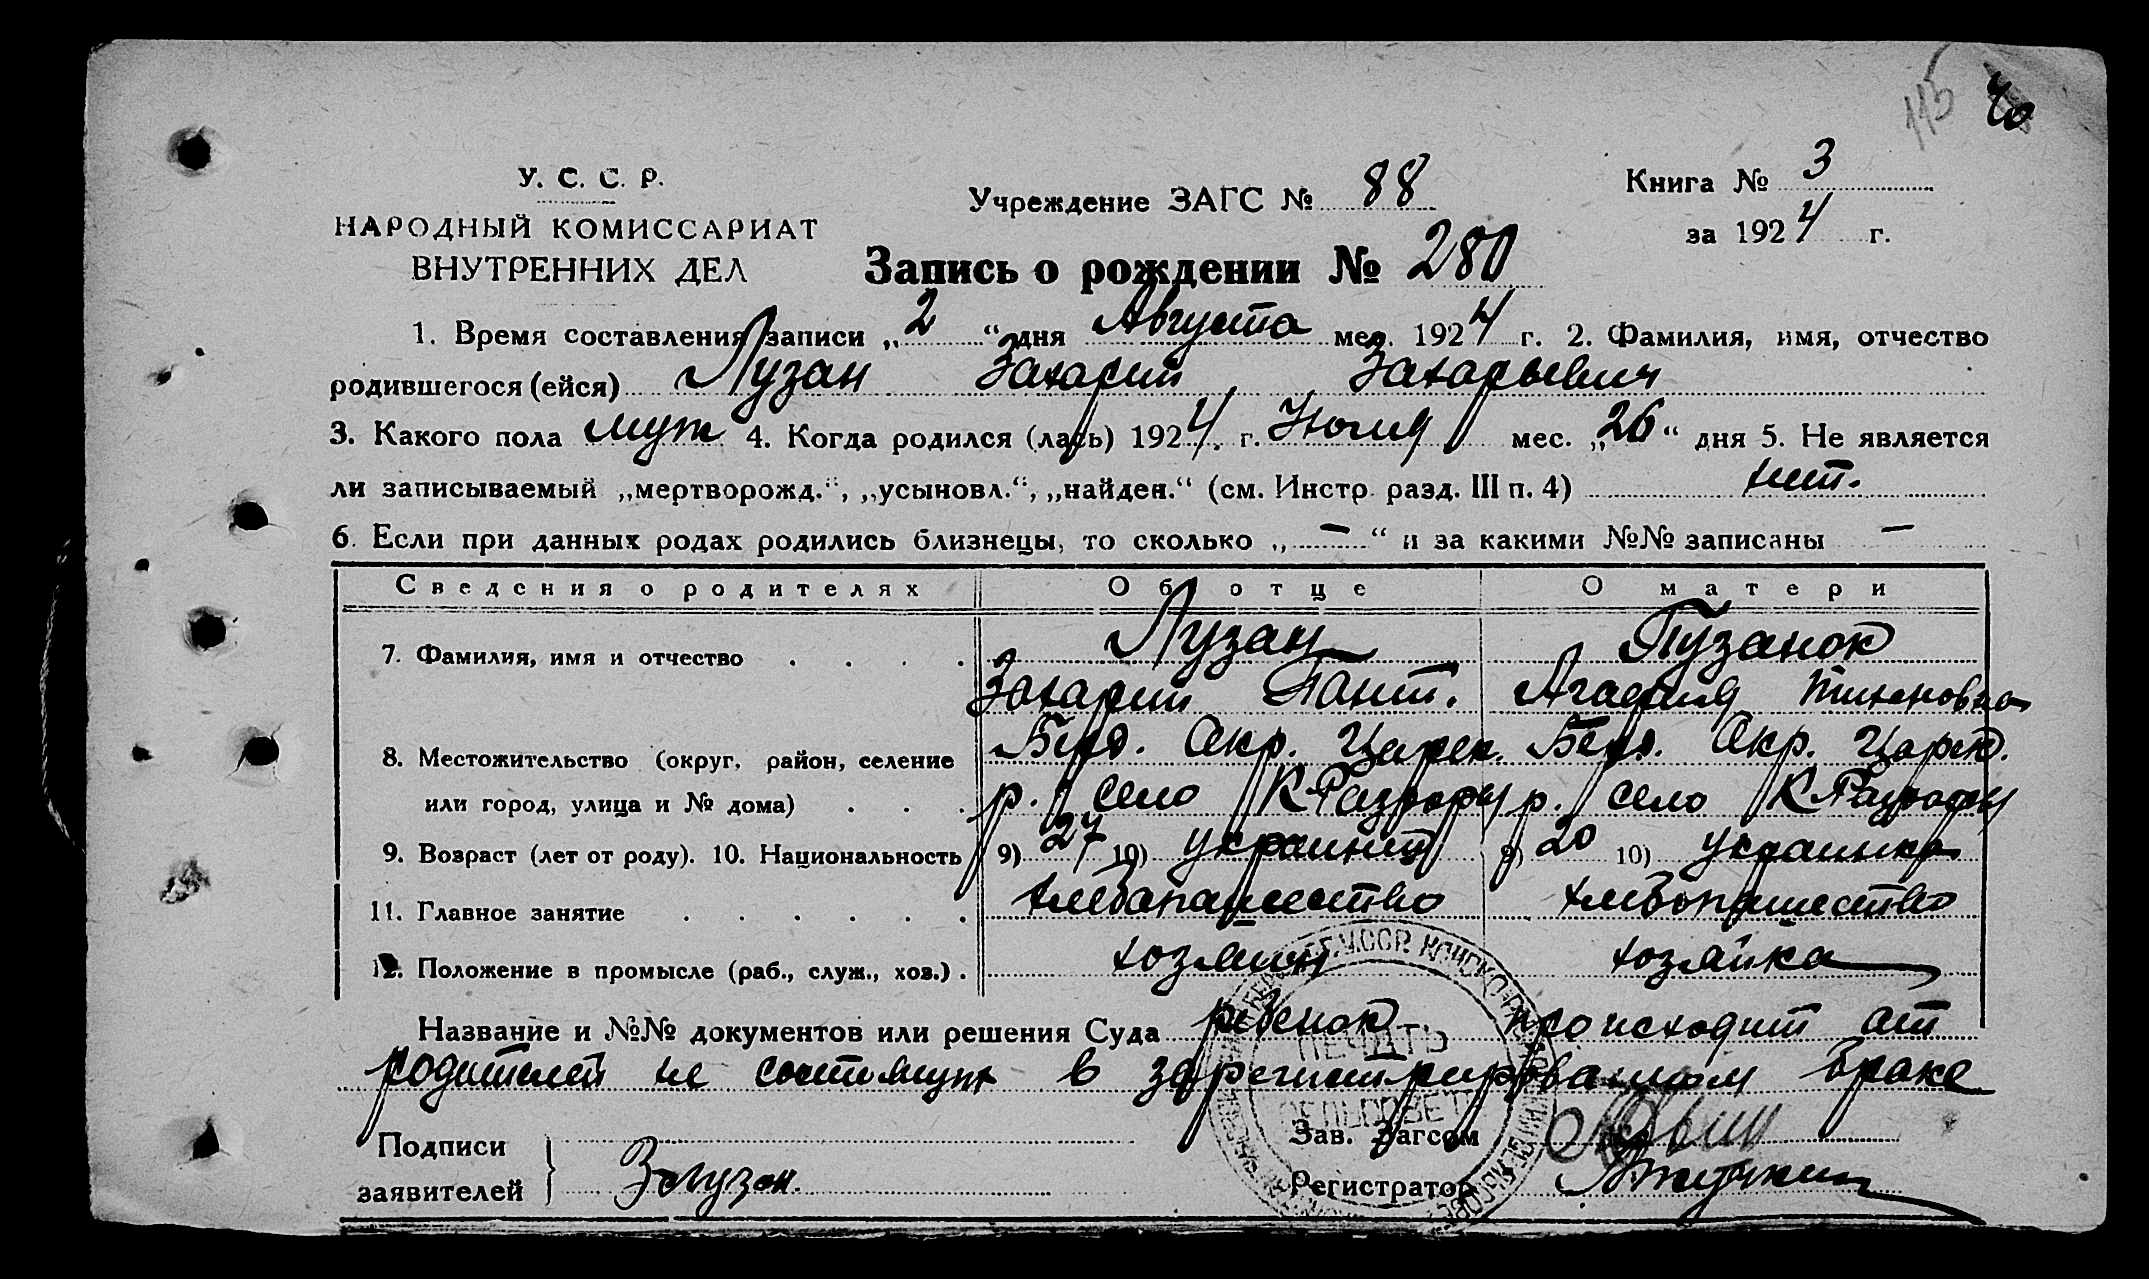 115 40
У. С. С. Р.
НАРОДНЫЙ КОМИССАРИАТ
ВНУТРЕННИХ ДЕЛ
Учреждение ЗАГС № 88
Книга № 3
за 1924 г.
Запись о рождении № 280
1. Время составления записи „2“ дня Августа мес. 1924 г. 2. Фамилия, имя, отчество
родившегося (ейся) Лузан Захарий Захарьевич
3. Какого пола муж 4. Когда родился (лась) 1924 г. Июля мес. „26“ дня 5. Не является
ли записываемый „мертворожд.“, „усыновл.“, „найден.“ (см. Инстр. разд. III п. 4) нет.
6. Если при данных родах родились близнецы, то сколько „—“ и за какими №№ записаны —
Сведения о родителях Об отце О матери
7. Фамилия, имя и отчество . . . . Лузан Пузанок
Захарий Пант. Агафия Тихоновна
8. Местожительство (округ, район, селение Берд. Окр. Царек. Берд. Окр. Царек.
или город, улица и № дома) . . . р. село К Разборы р. село К Разборы
9. Возраст (лет от роду). 10. Национальность 9) 27 10) украинец 9) 20 10) украинка
11. Главное занятие . . . . . . хлебапашество хлебопашество
12. Положение в промысле (раб., служ., хоз.) . хозяин хозяйка
Название и №№ документов или решения Суда ребенок происходит от
родителей не состоящих в зарегистрированом браке
Подписи
заявителей } З Лузан.
Зав. Загсом
Регистратор
ПЕЧАТЬ
СЕЛЬСОВЕТ